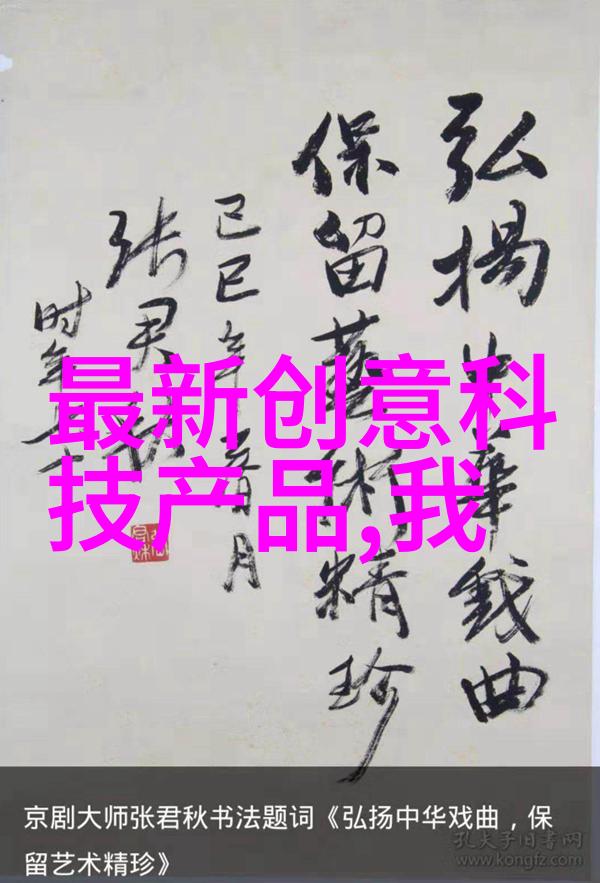 弘揚中華戲曲
保留藝術精珍
己巳年月
张君秋
时年七十
最新创意科
技产品,我
京剧大师张君秋书法题词《弘扬中华戏曲，保
留艺术精珍》
孔夫子旧书网
www.kongfz.com